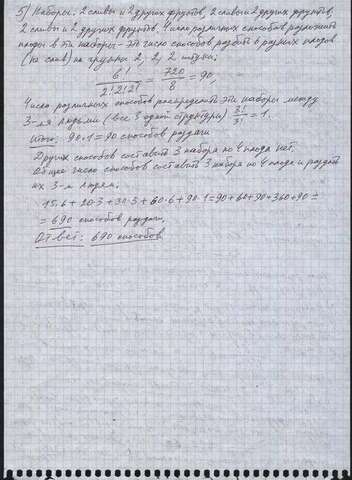 5) Наборы: 2 сливы и 2 других фруктов, 2 сливы и 2 других фруктов,
2 сливы и 2 других фруктов. Число различных способов разложить
плоды в эти наборы - это число способов разбить 6 разных плодов
(не слив) на группы 2, 2, 2 штуки.
6! / 2!2!2! = 720 / 8 = 90
Число различных способов распределить эти наборы между
3-мя людьми (все 3 одной структуры) 3! / 3! = 1.
Итого: 90·1=90 способов раздачи
Других способов составить 3 набора по 4 плода нет.
Общее число способов составить 3 набора по 4 плода и раздать
их 3-м людям.
15·6 + 20·3 + 30·3 + 60·6 + 90·1=90+60+90+360+90 =
= 690 способов раздачи.
Ответ: 690 способов